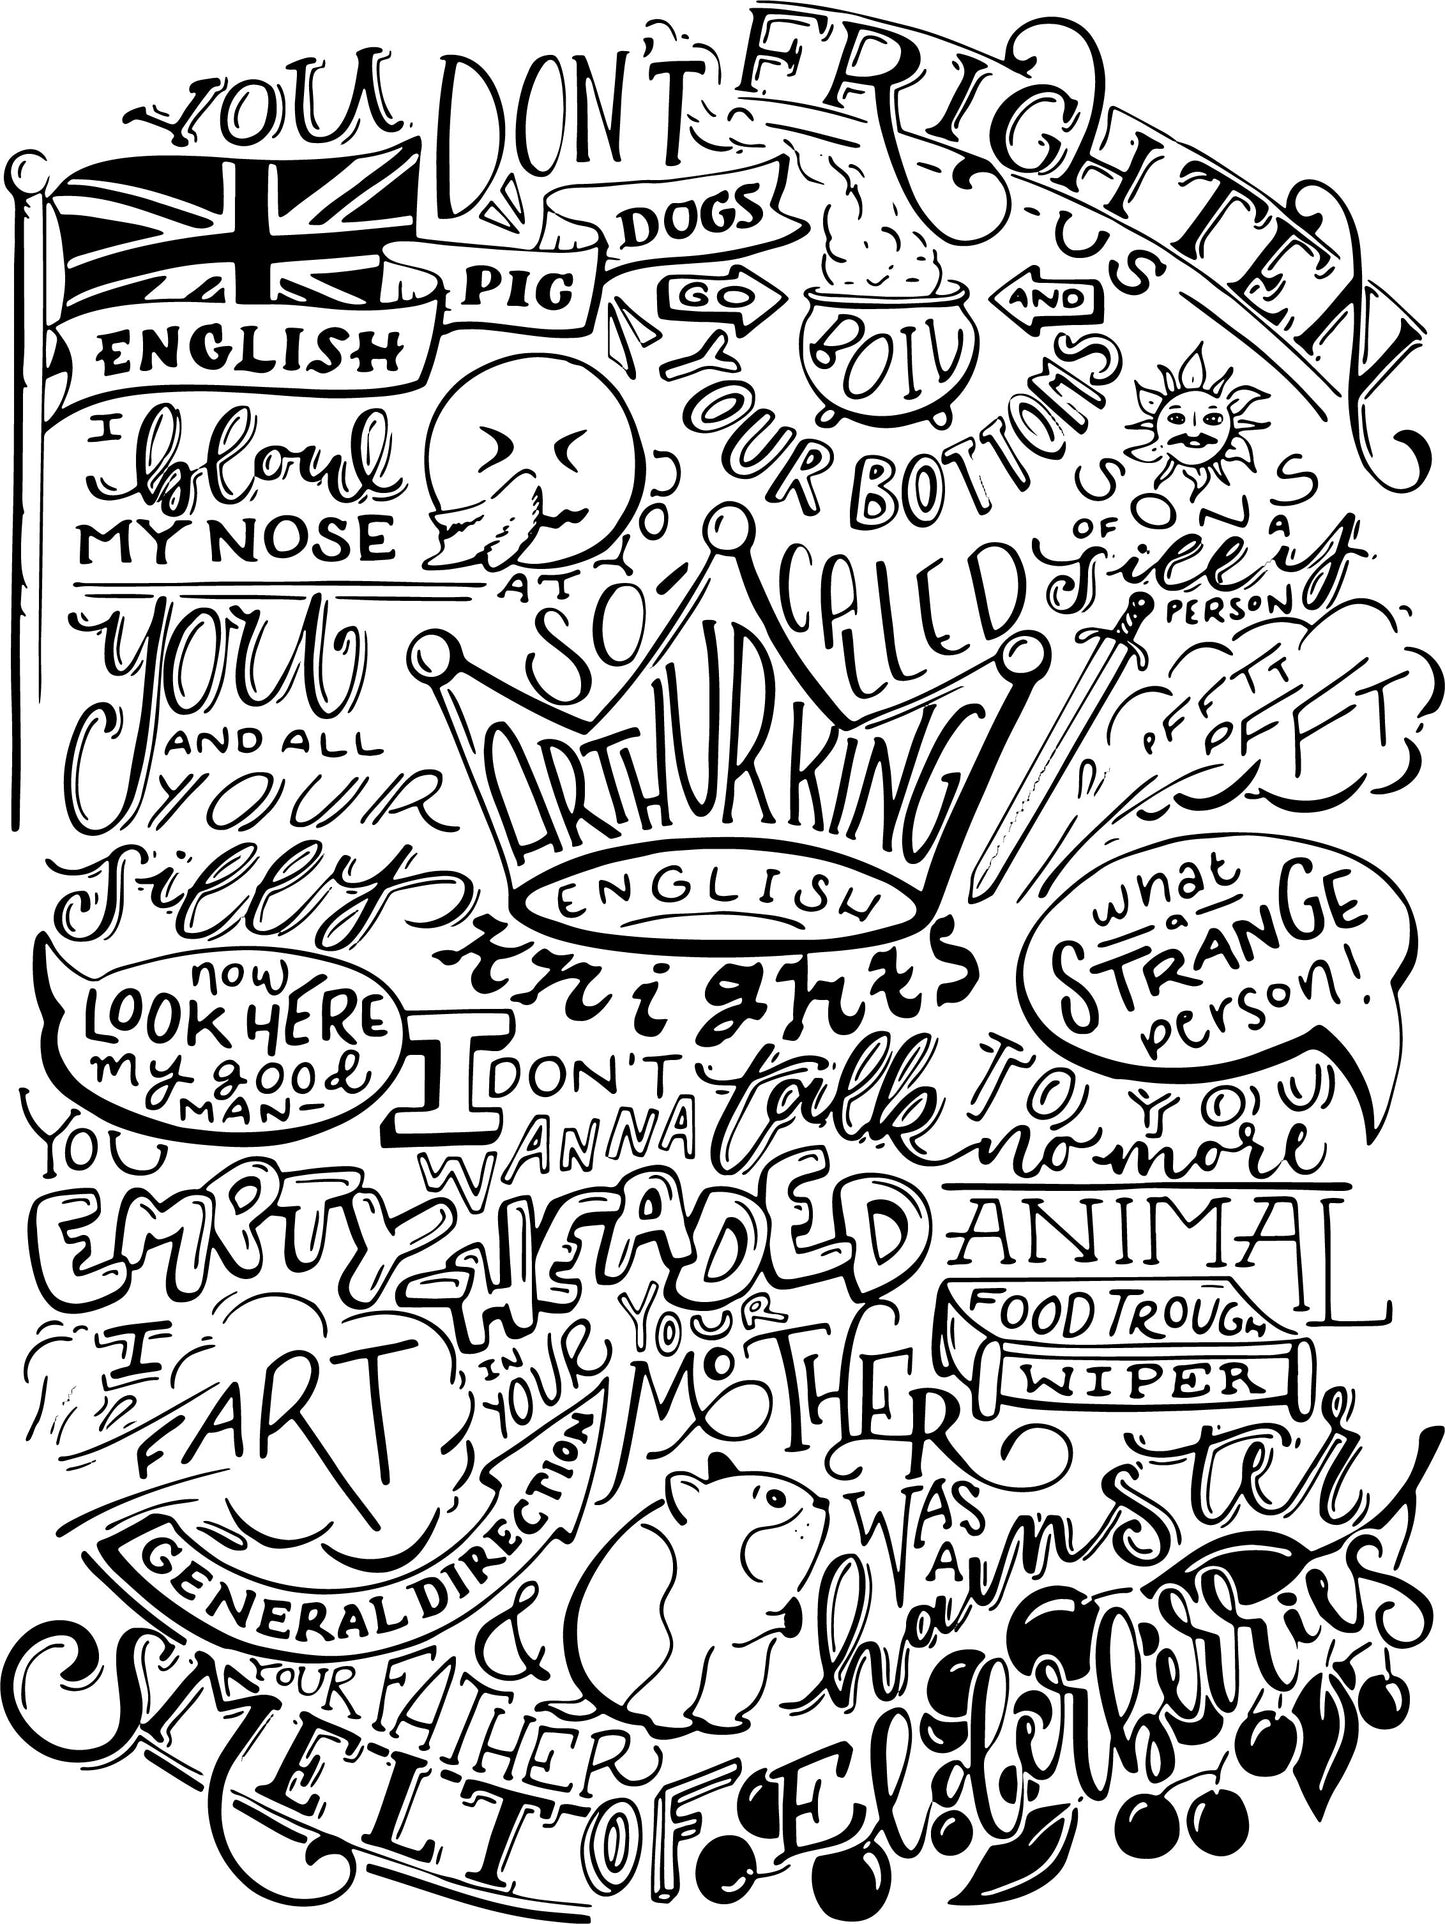 YOU DON'T FRIGHTEN
US
ENGLISH PIG DOGS
GO AND BOIL
YOUR BOTTOMS
SONS
OF A
Silly
PERSON
I blow
MY NOSE
AT YOU
SO-CALLED
ARTHUR KING
you
AND ALL
YOUR
silly
ENGLISH
knights
PFFTT
PFFFT
what
a
STRANGE
person!
now
LOOK HERE
my good
MAN-
I DON'T
WANNA talk TO YOU
no more
YOU
EMPTY-HEADED
ANIMAL
FOOD TROUGH
WIPER
I
FART
IN
YOUR
GENERAL DIRECTION
YOUR
MOTHER
WAS
A
hamster
&
YOUR FATHER
SMELT OF Elderberries